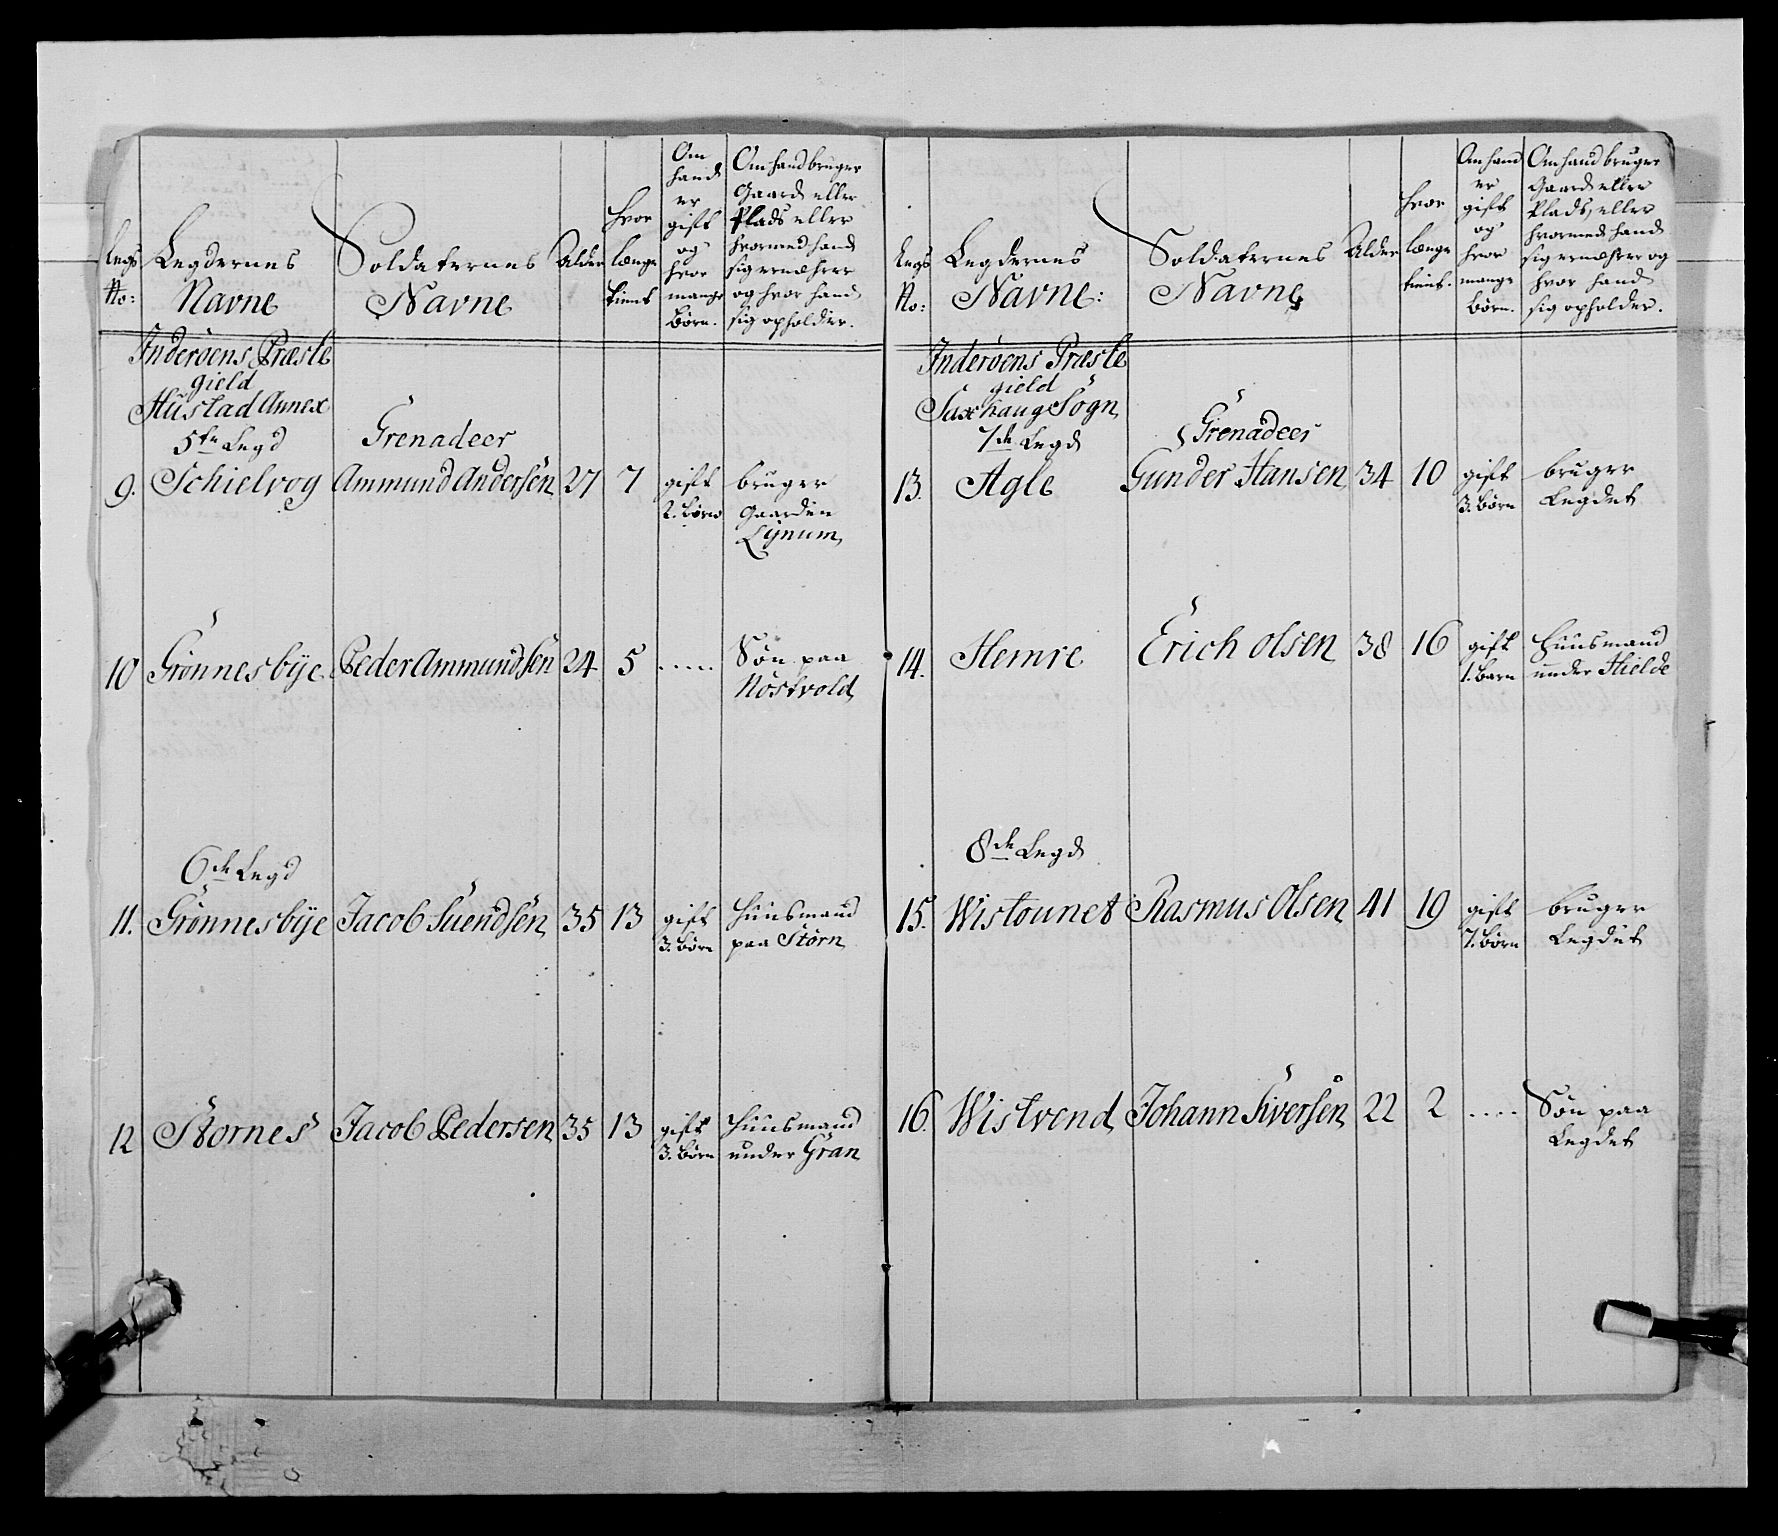 Legs No: | Legdernes Navne | Soldaternes Navne | Alder | hvor længe tient | Om hand er gift og hvor mange børn. | Om hand bruger Gaard eller Plads eller hvormed hand sig ernæhrer og hvor hand sig opholder.
Inderøens Præste
gield
Hustad Annex
5te Legd | Grenadeer
9. | Schielvog | Ammund Andersen | 27 | 7 | gift 2. børn | bruger Gaarden Lynum
10 | Grønnesbÿe | Peder Ammundsen | 24 | 5 | ..... | Søn paa Nøstvold
6de Legd
11. | Grønnesbÿe | Jacob Suendsen | 35 | 13 | gift 3. børn | Huusmand paa Størn
12 | Stornes | Jacob Pedersen | 35 | 13 | gift 3. børn | Huusmand under Gran
Legs No: | Legdernes Navne: | Soldaternes Navne | Alder | hvor længe tient. | Om hand er gift og hvor mange børn. | Om hand bruger Gaard eller Plads, eller hvormed hand sig ernæhrer og hvor hand sig opholder.
Inderøens Præste
gield
Saxhaug Sogn
7de Legd | Grenadeer
13. | Agle | Gunder Hansen | 34 | 10 | gift 3. børn | bruger Legdet
14. | Hemre | Erich Olsen | 38 | 16 | gift 1. barn | Huusmand under Hielde
8de Legd
15. | Wistounet | Rasmus Olsen | 41 | 19 | gift 7. børn | bruger Legdet
16. | Wistvend | Johann Siversen | 22 | 2 | .... | Søn paa Legdet